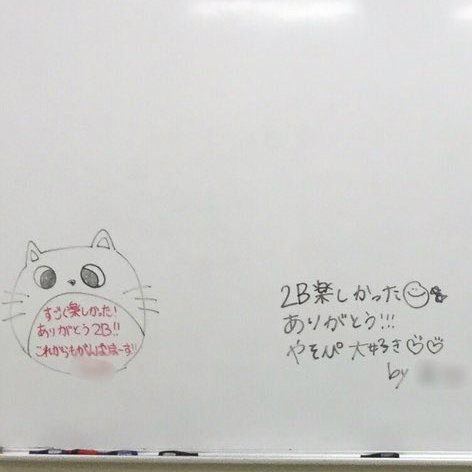 すごく楽しかった!
ありがとう2B!!
これからもがんばりまーす!!
2B楽しかった
ありがとう!!!
やそぴ 大好き♡♡
by